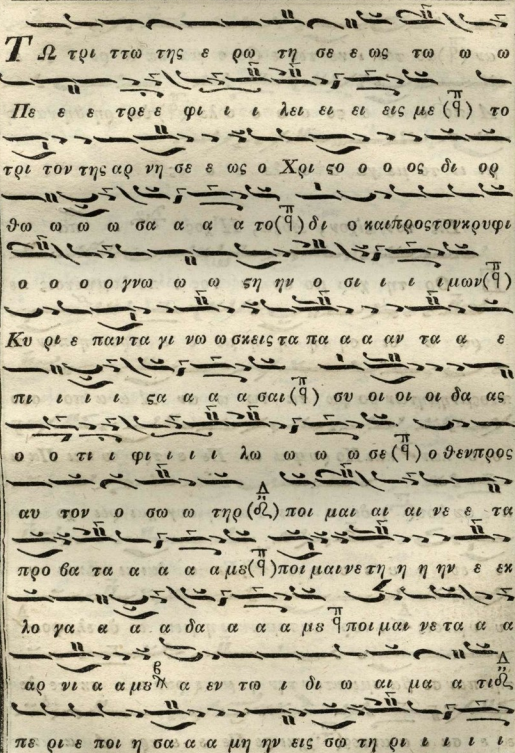 ΤΩ τρι ττω της ε ρω τη σε ε ως τω ω ω
Πε ε ε τρε ε φι ι ι λει ει ει εις με (π ϥ) το
τρι τον της αρ νη σε ε ως ο Χρι ϛο ο ο ος δι ορ
θω ω ω ω σα α α α το (π ϥ) δι ο και προς τον κρυφι
ο ο ο ο γνω ω ω ϛη ην ο σι ι ι ι μων (π ϥ)
Κυ ρι ε παν τα γι νω ω σκεις τα πα α α αν τα α ε
πι ι ι ι ϛα α α α σαι (π ϥ) συ οι οι οι δα ας
ο ο τι ι φι ι ι ι λω ω ω ω σε (π ϥ) ο θεν προς
αυ τον ο σω ω τηρ (Δ) ποι μαι αι αι νε ε τα
προ βα τα α α α α μȣ (π ϥ) ποι μαι νε τη η η ην ε εκ
λο γα α α α δα α α α μȣ π ϥ ποι μαι νε τα α α
αρ νι α α μȣ β α εν τω ι δι ω αι μα α τι Δ
πε ρι ε ποι η σα α α μη ην εις σω τη ρι ι ι ι